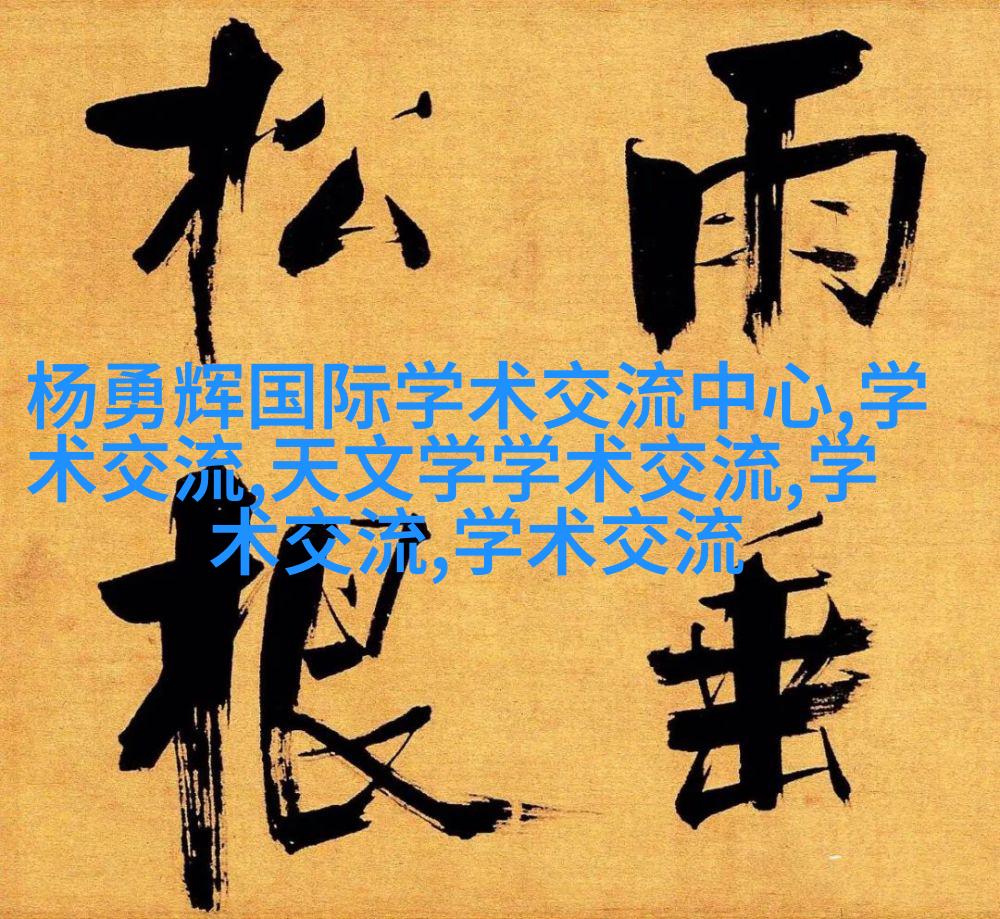 雨垂
松根
杨勇辉国际学术交流中心,学
术交流,天文学学术交流,学
术交流,学术交流